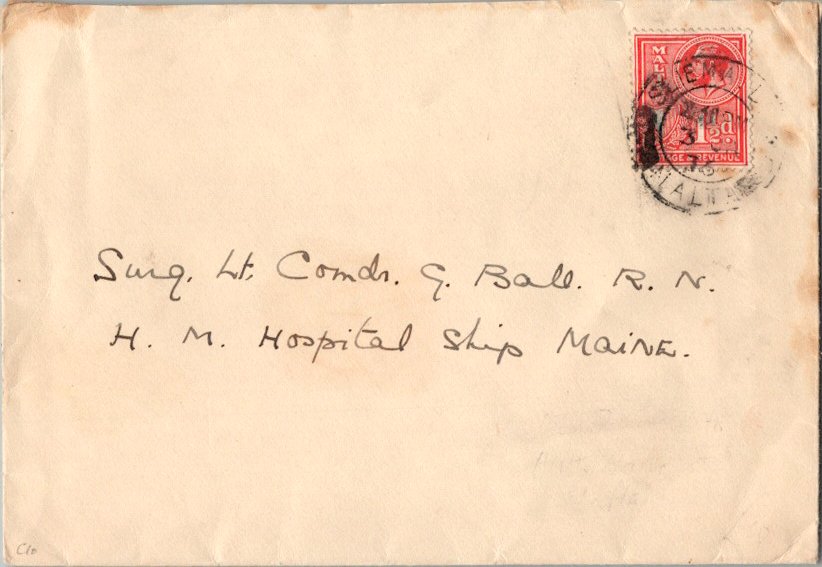 MALTA
1½d
POSTAGE & REVENUE
SLIEMA
3
36
MALTA
Surg. Lt. Comdr. G. Ball. R. N.
H. M. Hospital Ship MAINE.